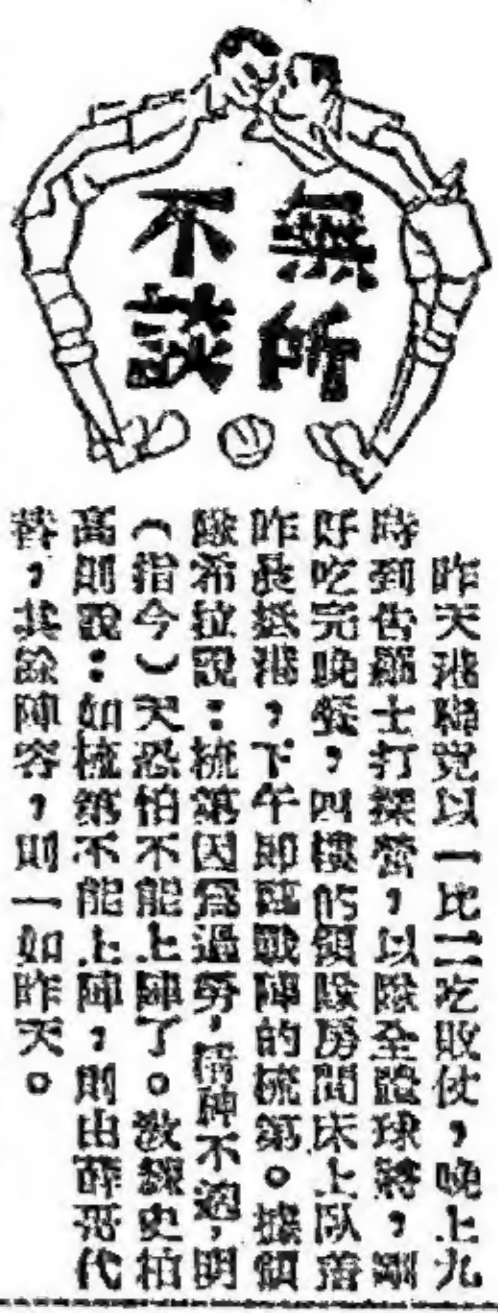 無所
不談
昨天港聯克以一比二吃敗仗，晚上九
時到告羅士打探營，以除全體球將，剛
好吃完晚餐，四樓的領隊房間床上臥着
昨晨抵港，下午即臨戰陣的梳第。據領
隊希拉說：梳第因爲過勞，精神不適，明
（指今）天恐怕不能上陣了。教練史柏
高則說：如梳第不能上陣，則由薛哥代
替，其餘陣容，則一如昨天。